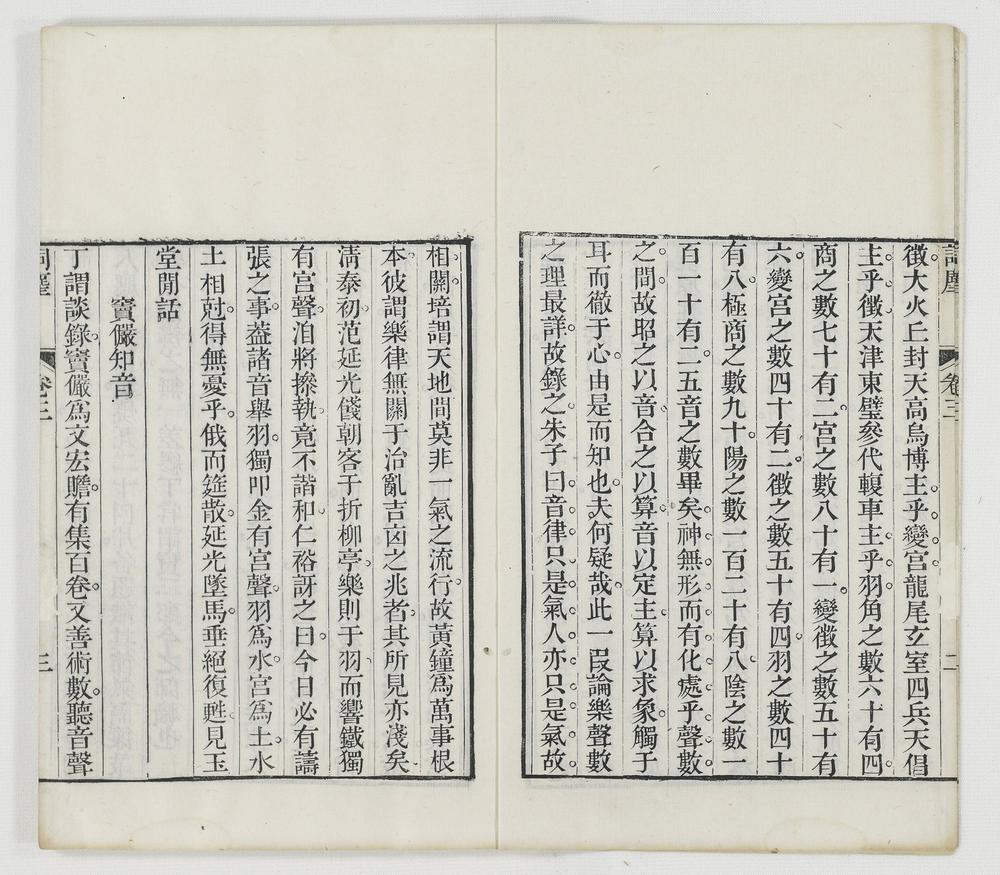 詞麈 卷三 二
徵大火丘封天高鳥博主乎變宮龍尾玄室四兵天倡
主乎徵天津東璧參代輹車主乎羽角之數六十有四
商之數七十有二宮之數八十有一變徵之數五十有
六變宮之數四十有二徵之數五十有四羽之數四十
有八極商之數九十陽之數一百二十有八陰之數一
百一十有二五音之數畢矣神無形而有化處乎聲數
之間故昭之以音合之以算音以定主算以求象觸于
耳而徹于心由是而知也夫何疑哉此一段論樂聲數
之理最詳故錄之朱子曰音律只是氣人亦只是氣故
相關培謂天地間莫非一氣之流行故黃鐘爲萬事根
本彼謂樂律無關于治亂吉凶之兆者其所見亦淺矣
淸泰初范延光餞朝客于折柳亭樂則于羽而響鐵獨
有宮聲洎將摻執竟不諧和仁裕訝之曰今日必有譸
張之事葢諸音舉羽獨叩金有宮聲羽爲水宮爲土水
土相尅得無憂乎俄而筵散延光墜馬垂絕復甦見玉
堂閒話
竇儼知音
丁謂談錄竇儼爲文宏贍有集百卷又善術數聽音聲
詞麈 卷三 三